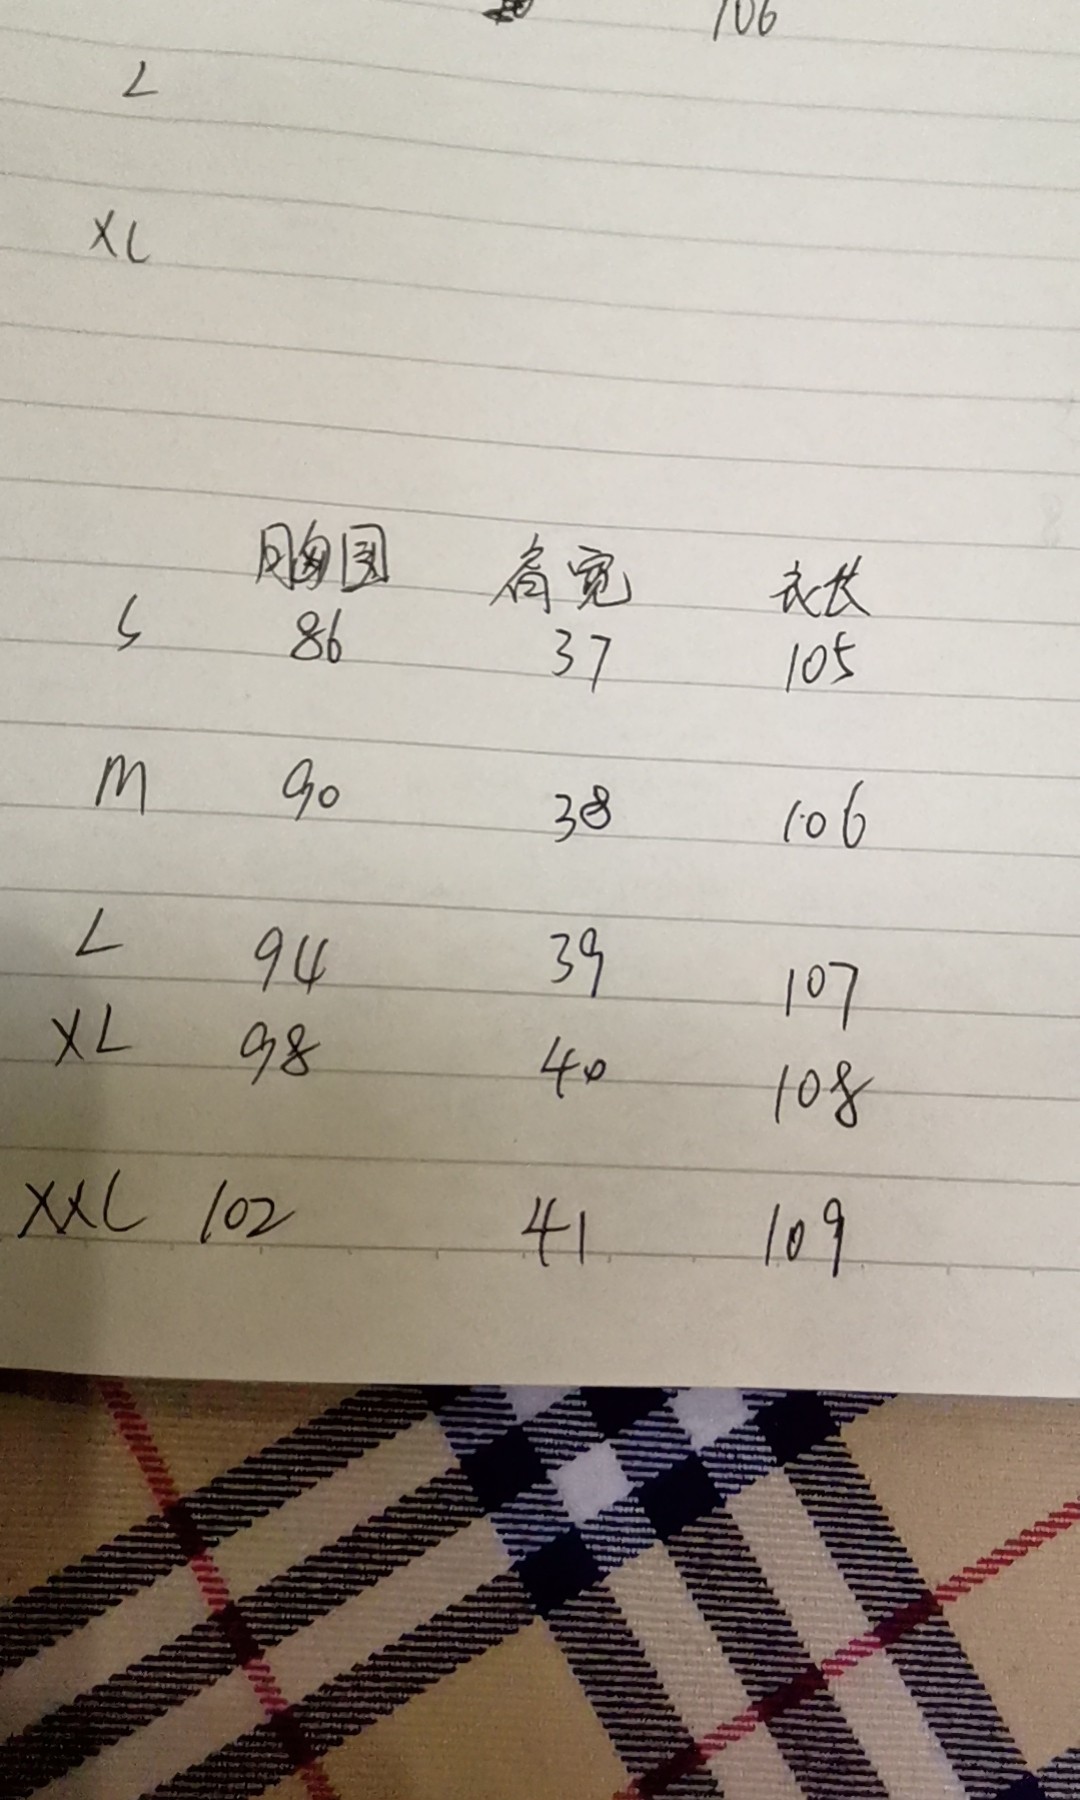 106
L
XL
胸围 肩宽 衣长
S 86 37 105
M 90 38 106
L 94 39 107
XL 98 40 108
XXL 102 41 109